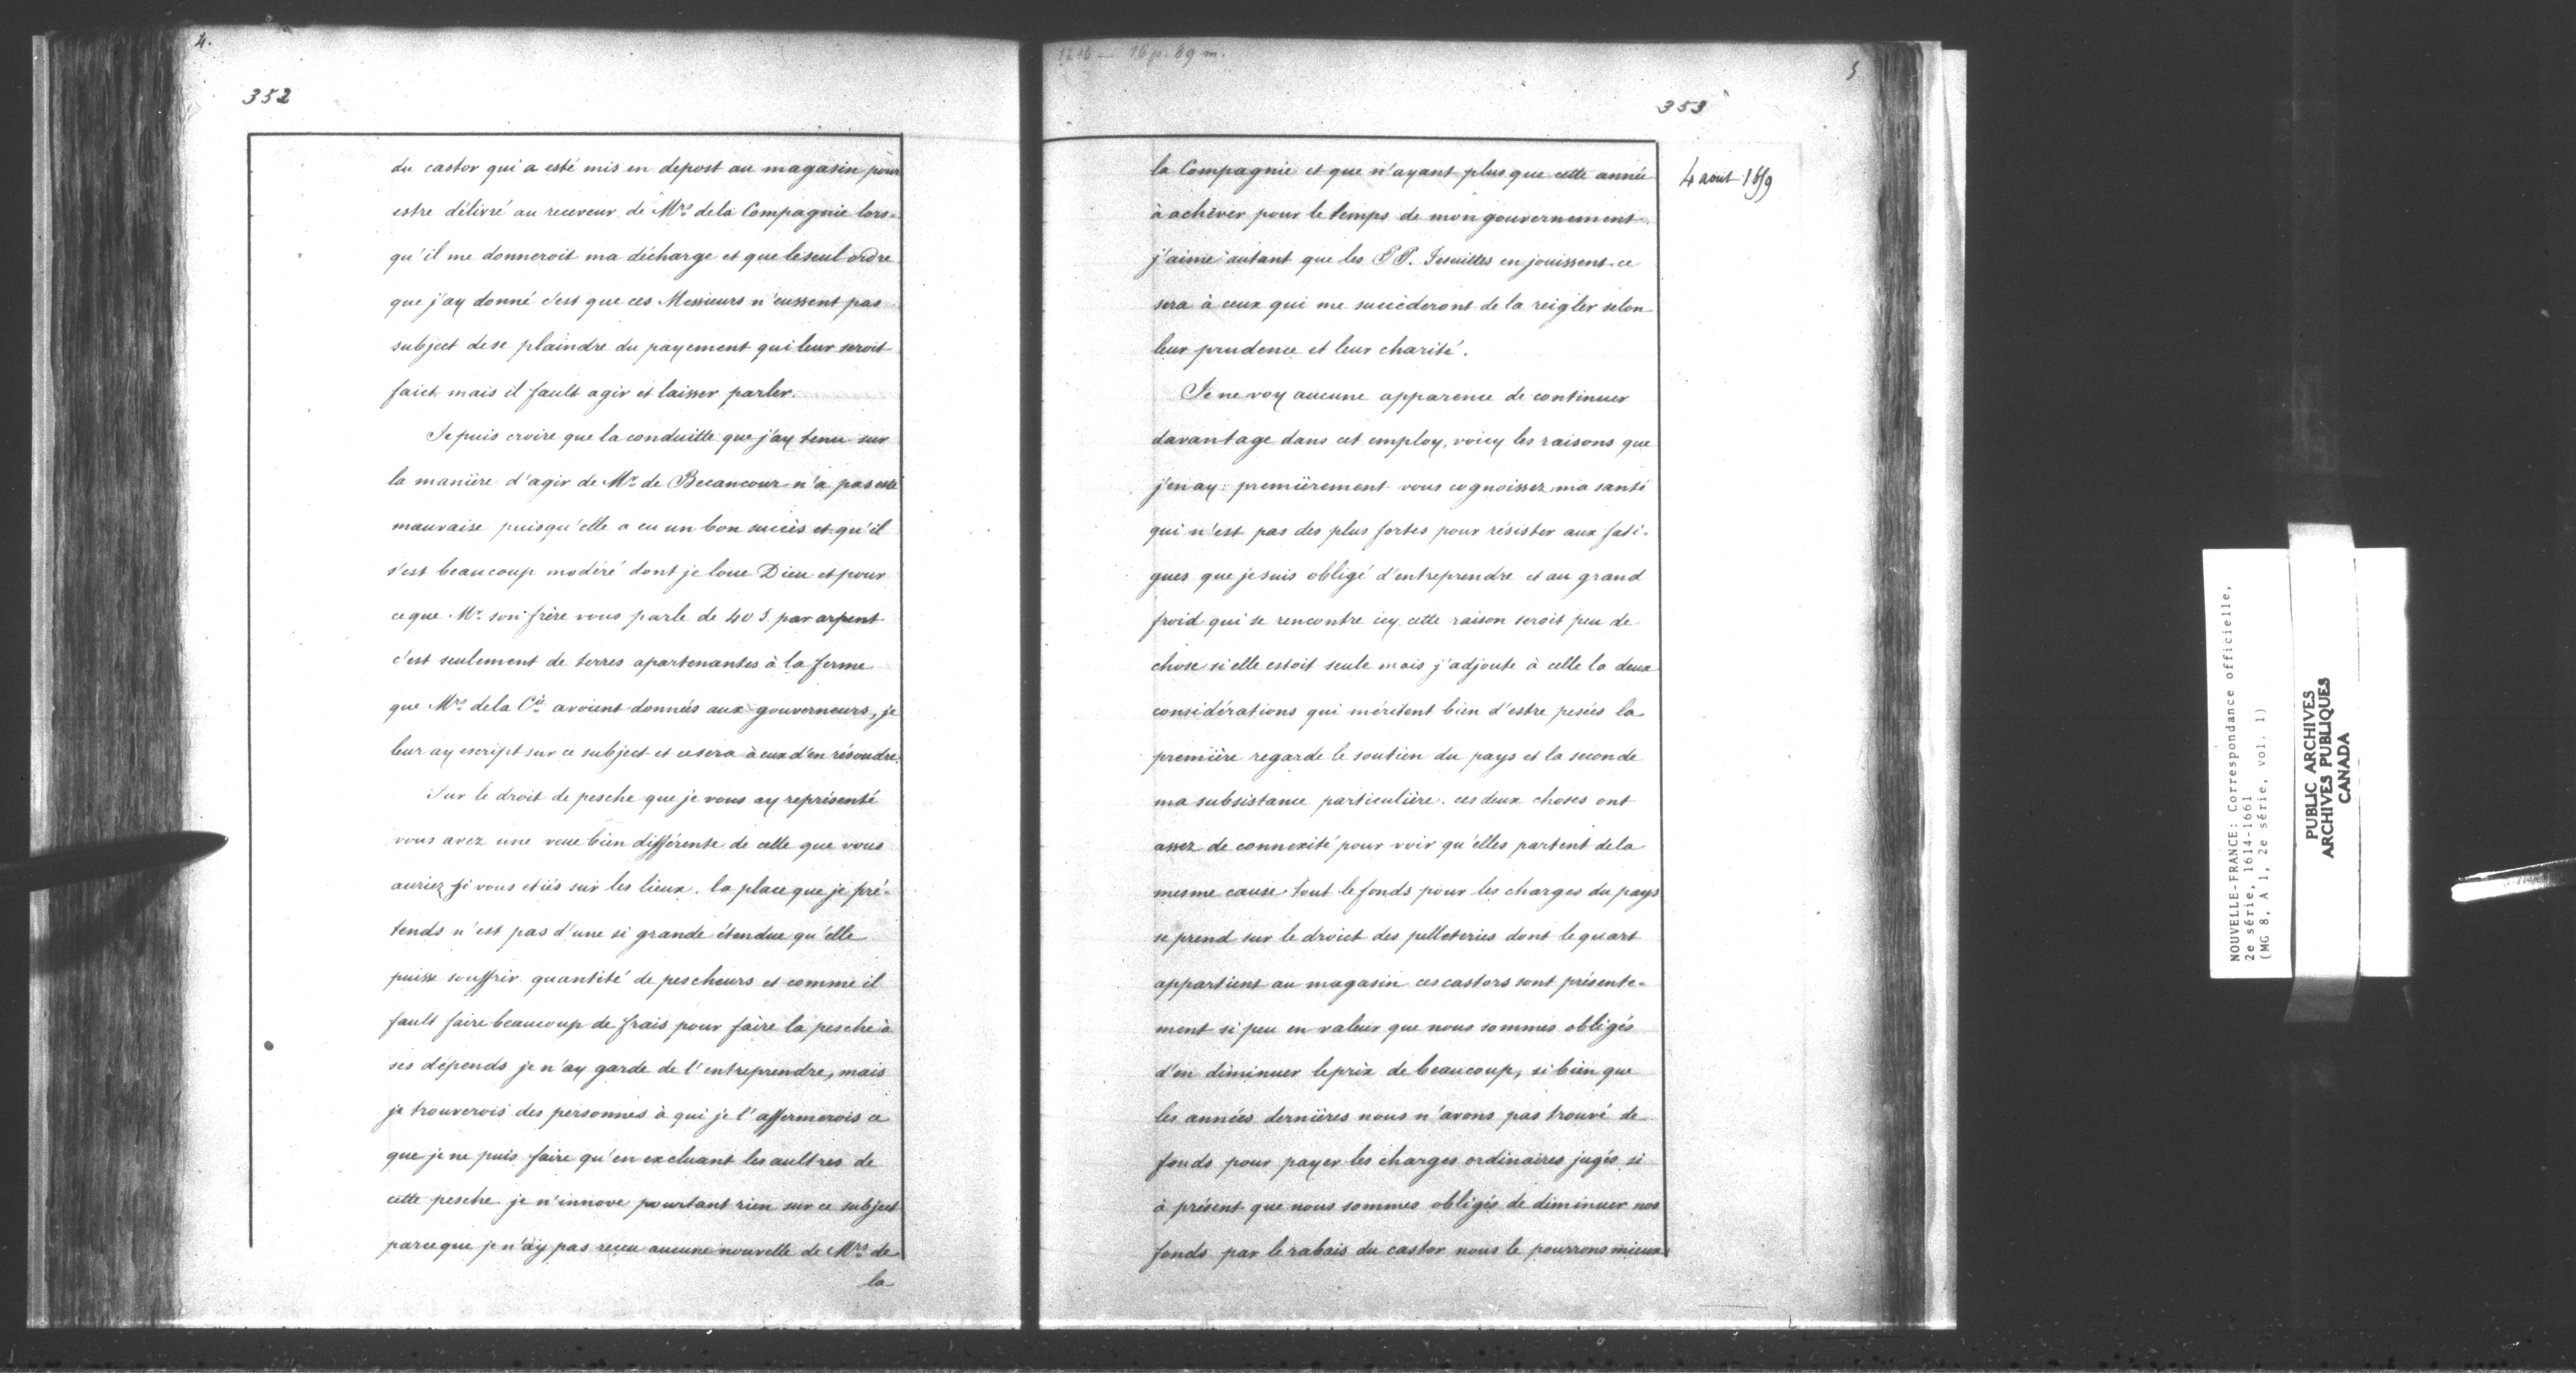 4.
352
du castor qui a esté mis en depost au magasin pour
estre délivré au receveur de Mrs. dela Compagnie lors-
qu'il me donneroit ma décharge et que le seul ordre
que j'ay donné c'est que ces Messieurs n'eussent pas
subject de se plaindre du payement qui leur seroit
faict mais il fault agir et laisser parler.
Je puis croire que la conduitte que j'ay tenu sur
la manière d'agir de Mr. de Becancour n'a pas esté
mauvaise puisqu'elle a eu un bon succès et qu'il
s'est beaucoup modéré dont je loue Dieu et pour
ce que Mr. son frère vous parle de 40 S. par arpent
c'est seulement de terres apartenantes à la ferme
que Mrs. dela Cie. avoient données aux gouverneurs, je
leur ay escript sur ce subject et ce sera à eux d'en résoudre.
Sur le droit de pesche que je vous ay représenté
vous avez une veue bien différente de celle que vous
auriez si vous etiés sur les lieux. la place que je pré-
tends n'est pas d'une si grande étendue qu'elle
puisse souffrir quantité de pescheurs et comme il
fault faire beaucoup de frais pour faire la pesche à
ses dépends je n'ay garde de l'entreprendre, mais
je trouverois des personnes à qui je l'affermerois ce
que je ne puis faire qu'en excluant les aultres de
cette pesche je n'innove pourtant rien sur ce subject
parceque je n'ay pas receu aucune nouvelle de Mrs. de
la
16 p. 89 m.
5
353
4 aout 1659
la Compagnie et que n'ayant plus que cette année
à achever pour le temps de mon gouvernement
j'aime autant que les P P. Jesuittes en jouissent ce
sera à ceux qui me succèderont de la reigler selon
leur prudence et leur charité.
Je ne voy aucune apparence de continuer
davantage dans cet employ, voicy les raisons que
j'en ay: premièrement vous cognoissez ma santé
qui n'est pas des plus fortes pour résister aux fati-
gues que je suis obligé d'entreprendre et au grand
froid qui se rencontre icy cette raison seroit peu de
chose si elle estoit seule mais j'adjoute à celle la deux
considérations qui méritent bien d'estre pesées la
première regarde le soutien du pays et la seconde
ma subsistance particulière. ces deux choses ont
assez de connexité pour voir qu'elles partent dela
mesme cause tout le fonds pour les charges du pays
se prend sur le droict des pelleteries dont le quart
appartient au magasin ces castors sont présente-
ment si peu en valeur que nous sommes obligés
d'en diminuer le prix de beaucoup, si bien que
les années dernières nous n'avons pas trouvé de
fonds pour payer les charges ordinaires jugés si
à présent que nous sommes obligés de diminuer nos
fonds par le rabais du castor nous le pourrons mieux
NOUVELLE-FRANCE: Correspondance officielle,
2e série, 1614-1661
(MG 8, A 1, 2e série, vol. 1)
PUBLIC ARCHIVES
ARCHIVES PUBLIQUES
CANADA